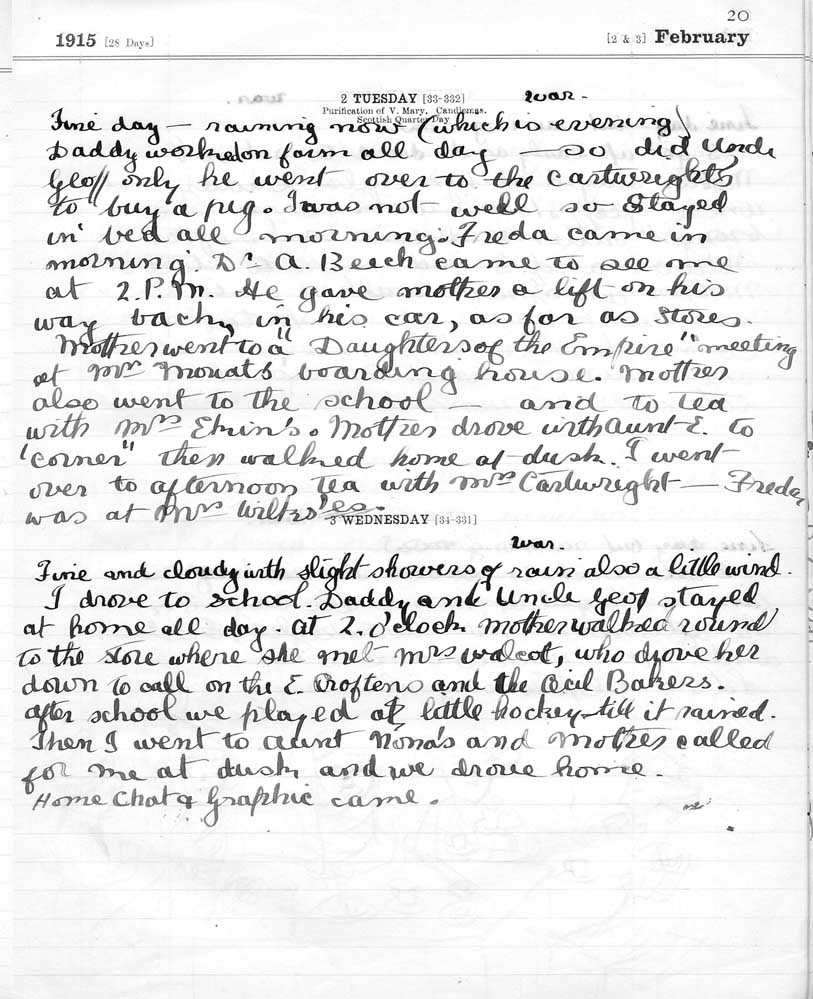 20
1915 [28 Days] [2 & 3] February
2 TUESDAY [33-332] war.
Purification of V. Mary. Candlemas.
Scottish Quarter Day
Fine day — raining now (which is evening)
Daddy worked on farm all day — so did Uncle
Geoff only he went over to the Cartwrights
to buy a pig. I was not well so stayed
in bed all morning. Freda came in
morning. Dr A. Beech came to see me
at 2. P.M. He gave mother a lift on his
way back, in his car, as far as Stores.
Mother went to a "Daughters of the Empire" meeting
at Mrs Mouats boarding house. Mother
also went to the school — and to tea
with Mrs Elkin's. Mother drove with Aunt E. to
"corner" then walked home at dusk. I went
over to afternoon tea with Mrs Cartwright — Freda
was at Mrs Wilkes'es.
3 WEDNESDAY [34-331]
war.
Fine and cloudy with slight showers of rain also a little wind.
I drove to school. Daddy and Uncle Geof stayed
at home all day. at 2. o'clock Mother walked round
to the store where she met Mrs Walcot, who drove her
down to call on the E. Croftens and the Cecil Bakers.
after school we played at little hockey till it rained.
Then I went to aunt Nona's and Mother called
for me at dusk and we drove home.
Home Chat & Graphic came.